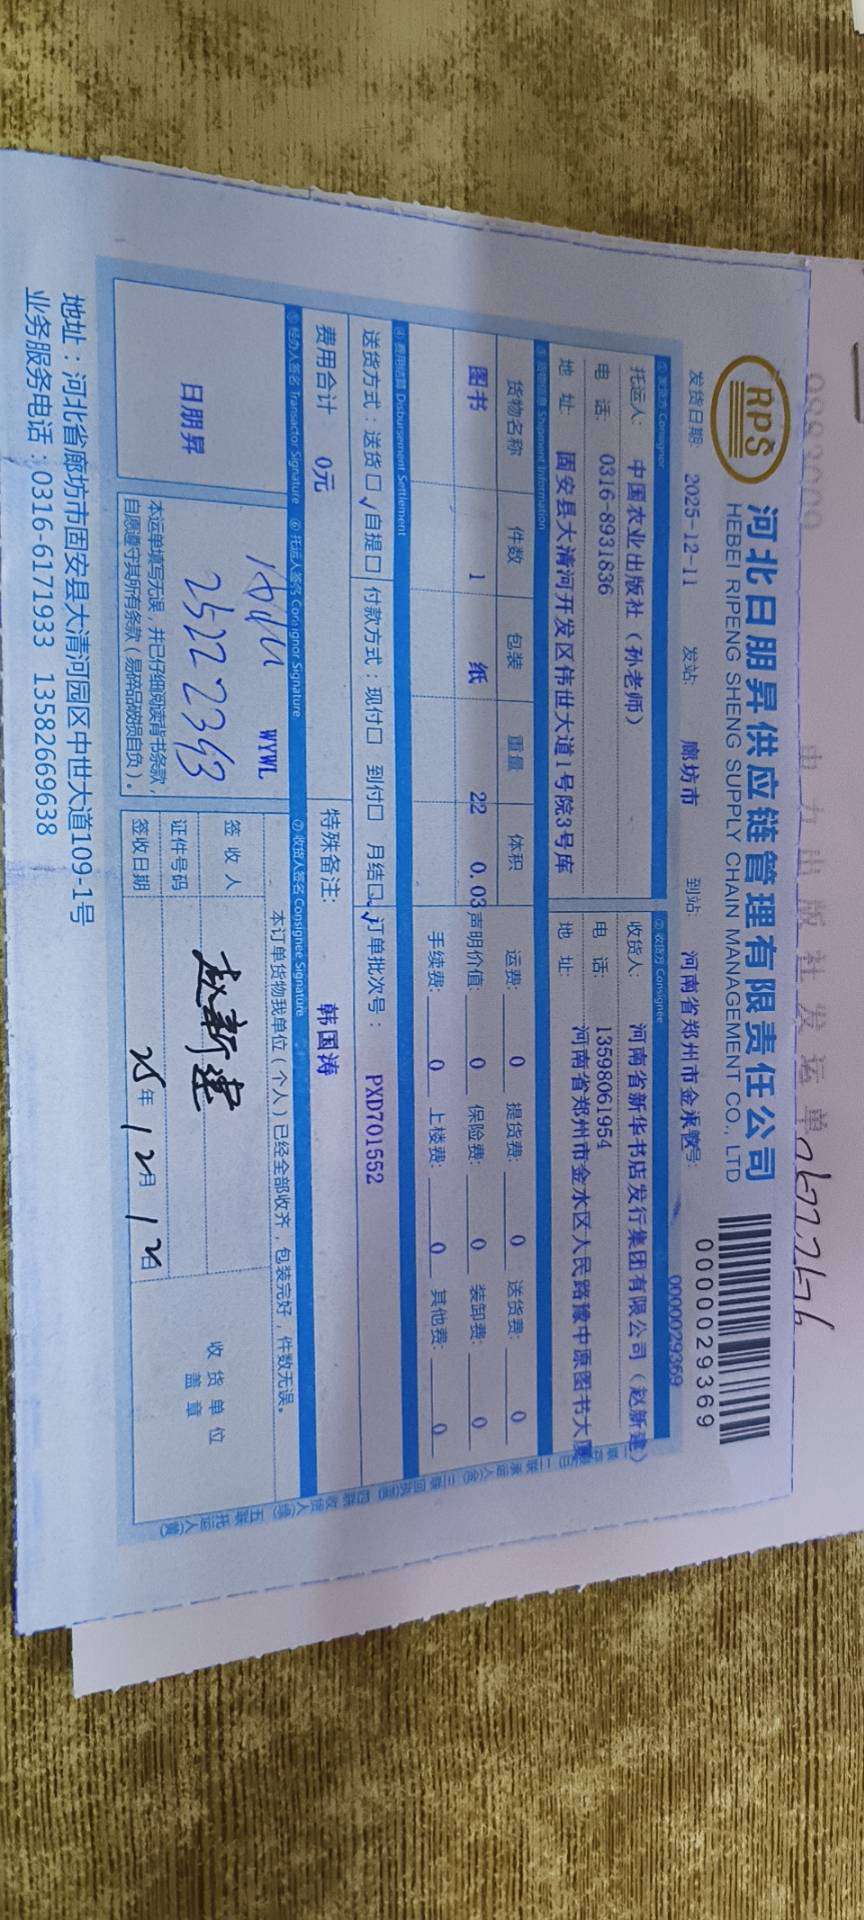 中力出版社发运单
RPS
河北日朋昇供应链管理有限责任公司
HEBEI RIPENG SHENG SUPPLY CHAIN MANAGEMENT CO., LTD
0000029369
发货日期: 2025-12-11 发站: 廊坊市 到站: 河南省郑州市金水区 0000029369
① 发货方 Consignor ② 收货方 Consignee
托运人: 中国农业出版社（孙老师） 收货人: 河南省新华书店发行集团有限公司（赵新建）
电 话: 0316-8931836 电 话: 13598061954
地 址: 固安县大清河开发区伟世大道1号院3号库 地 址: 河南省郑州市金水区人民路豫中原图书大厦
③ 货物信息 Shipment Information
货物名称 件数 包装 重量 体积 运费: 0 提货费: 0 送货费: 0
图书 1 纸 22 0.03 声明价值: 0 保险费: 0 装卸费: 0
手续费: 0 上楼费: 0 其他费: 0
④ 费用结算 Disbursement Settlement
送货方式：送货□√自提□ 付款方式：现付□ 到付□ 月结□√ 订单批次号： PXD701552
费用合计 0元 特殊备注: 韩国涛
⑤ 经办人签名 Transactor Signature ⑥ 托运人签名 Consignor Signature ⑦ 收货人签名 Consignee Signature
日朋昇
WYWL
25222343
本运单填写无误，并已仔细阅读背书条款，
自愿遵守其所有条款（易碎品破损自负）。
本订单货物我单位（个人）已经全部收齐，包装完好，件数无误。
签收人 赵新建
证件号码
签收日期 25年12月12日
收货单位
盖章
地址：河北省廊坊市固安县大清河园区中世大道109-1号
业务服务电话：0316-6171933 13582669638